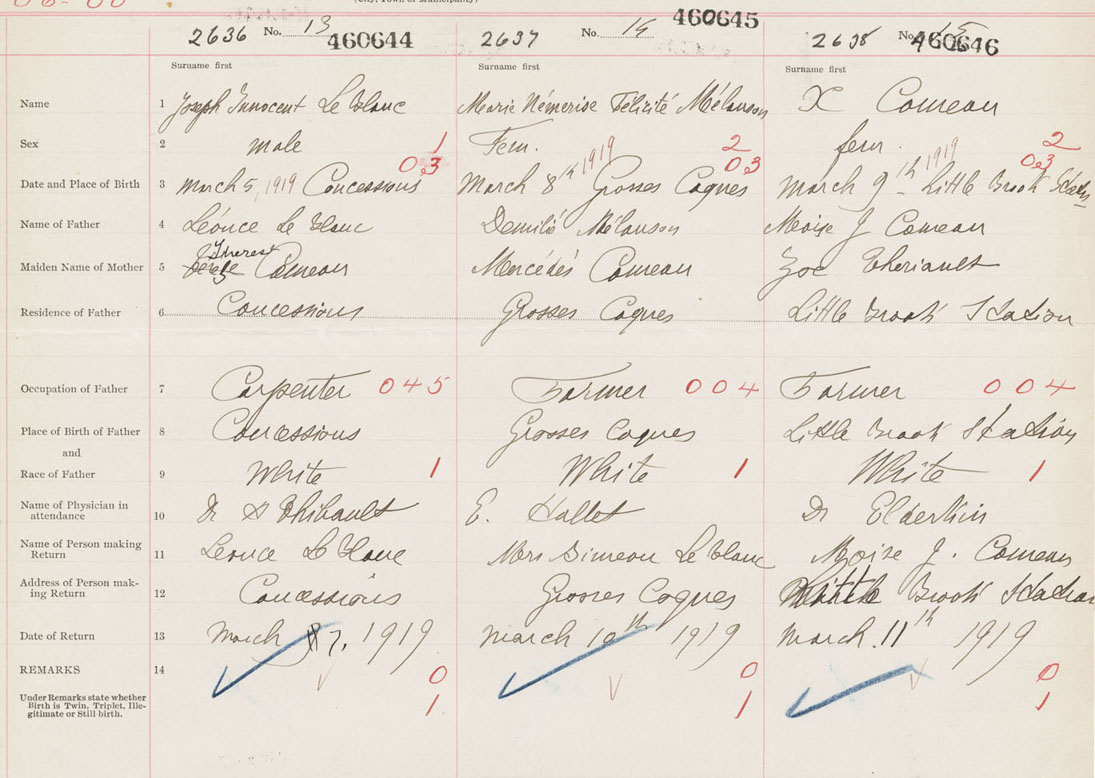 (City, Town or Municipality)
2636 No. 13 460644 2637 No. 14 460645 2638 No. 15 460646
Surname first Surname first Surname first
Name 1 Joseph Innocent Le Blanc Marie Némerise Félicité Mélanson X Comeau
Sex 2 male 1 Fem. 2 fem. 2
03 03 03
Date and Place of Birth 3 March 5, 1919 Concessions March 8th 1919 Grosses Coques March 9th 1919 Little Brook Station
Name of Father 4 Léonce Le Blanc Demilié Mélanson Moise J Comeau
Maiden Name of Mother 5 Therese Comeau Mercédès Comeau Zoe Theriault
Residence of Father 6 Concessions Grosses Coques Little Brook Station
Occupation of Father 7 Carpenter 045 Farmer 004 Farmer 004
Place of Birth of Father 8 Concessions Grosses Coques Little Brook Station
and
Race of Father 9 White 1 White 1 White 1
Name of Physician in
attendance 10 Dr Thibault E. Hallet Dr Elderkin
Name of Person making
Return 11 Leonce Le Blanc Mrs Simeon Le Blanc Moise J. Comeau
Address of Person mak-
ing Return 12 Concessions Grosses Coques Little Brook Station
Date of Return 13 March 7, 1919 March 10th 1919 March 11th 1919
REMARKS 14 0 0 0
Under Remarks state whether
Birth is Twin, Triplet, Ille-
gitimate or Still birth. 1 1 1